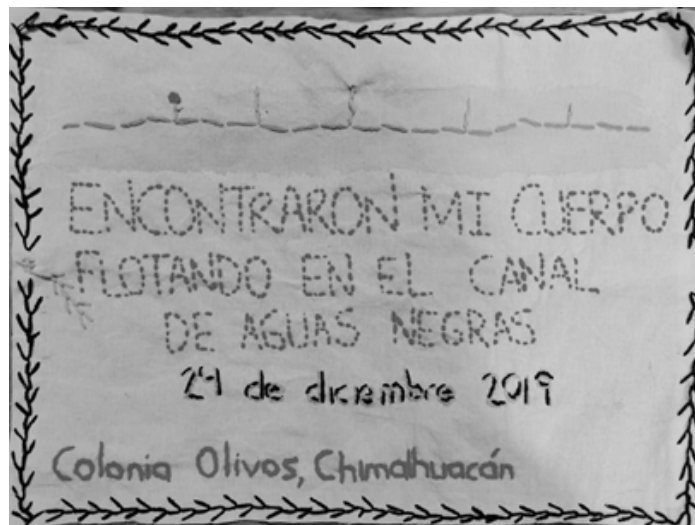 ENCONTRARON MI CUERPO
FLOTANDO EN EL CANAL
DE AGUAS NEGRAS
24 de diciembre 2019
Colonia Olivos, Chimalhuacán